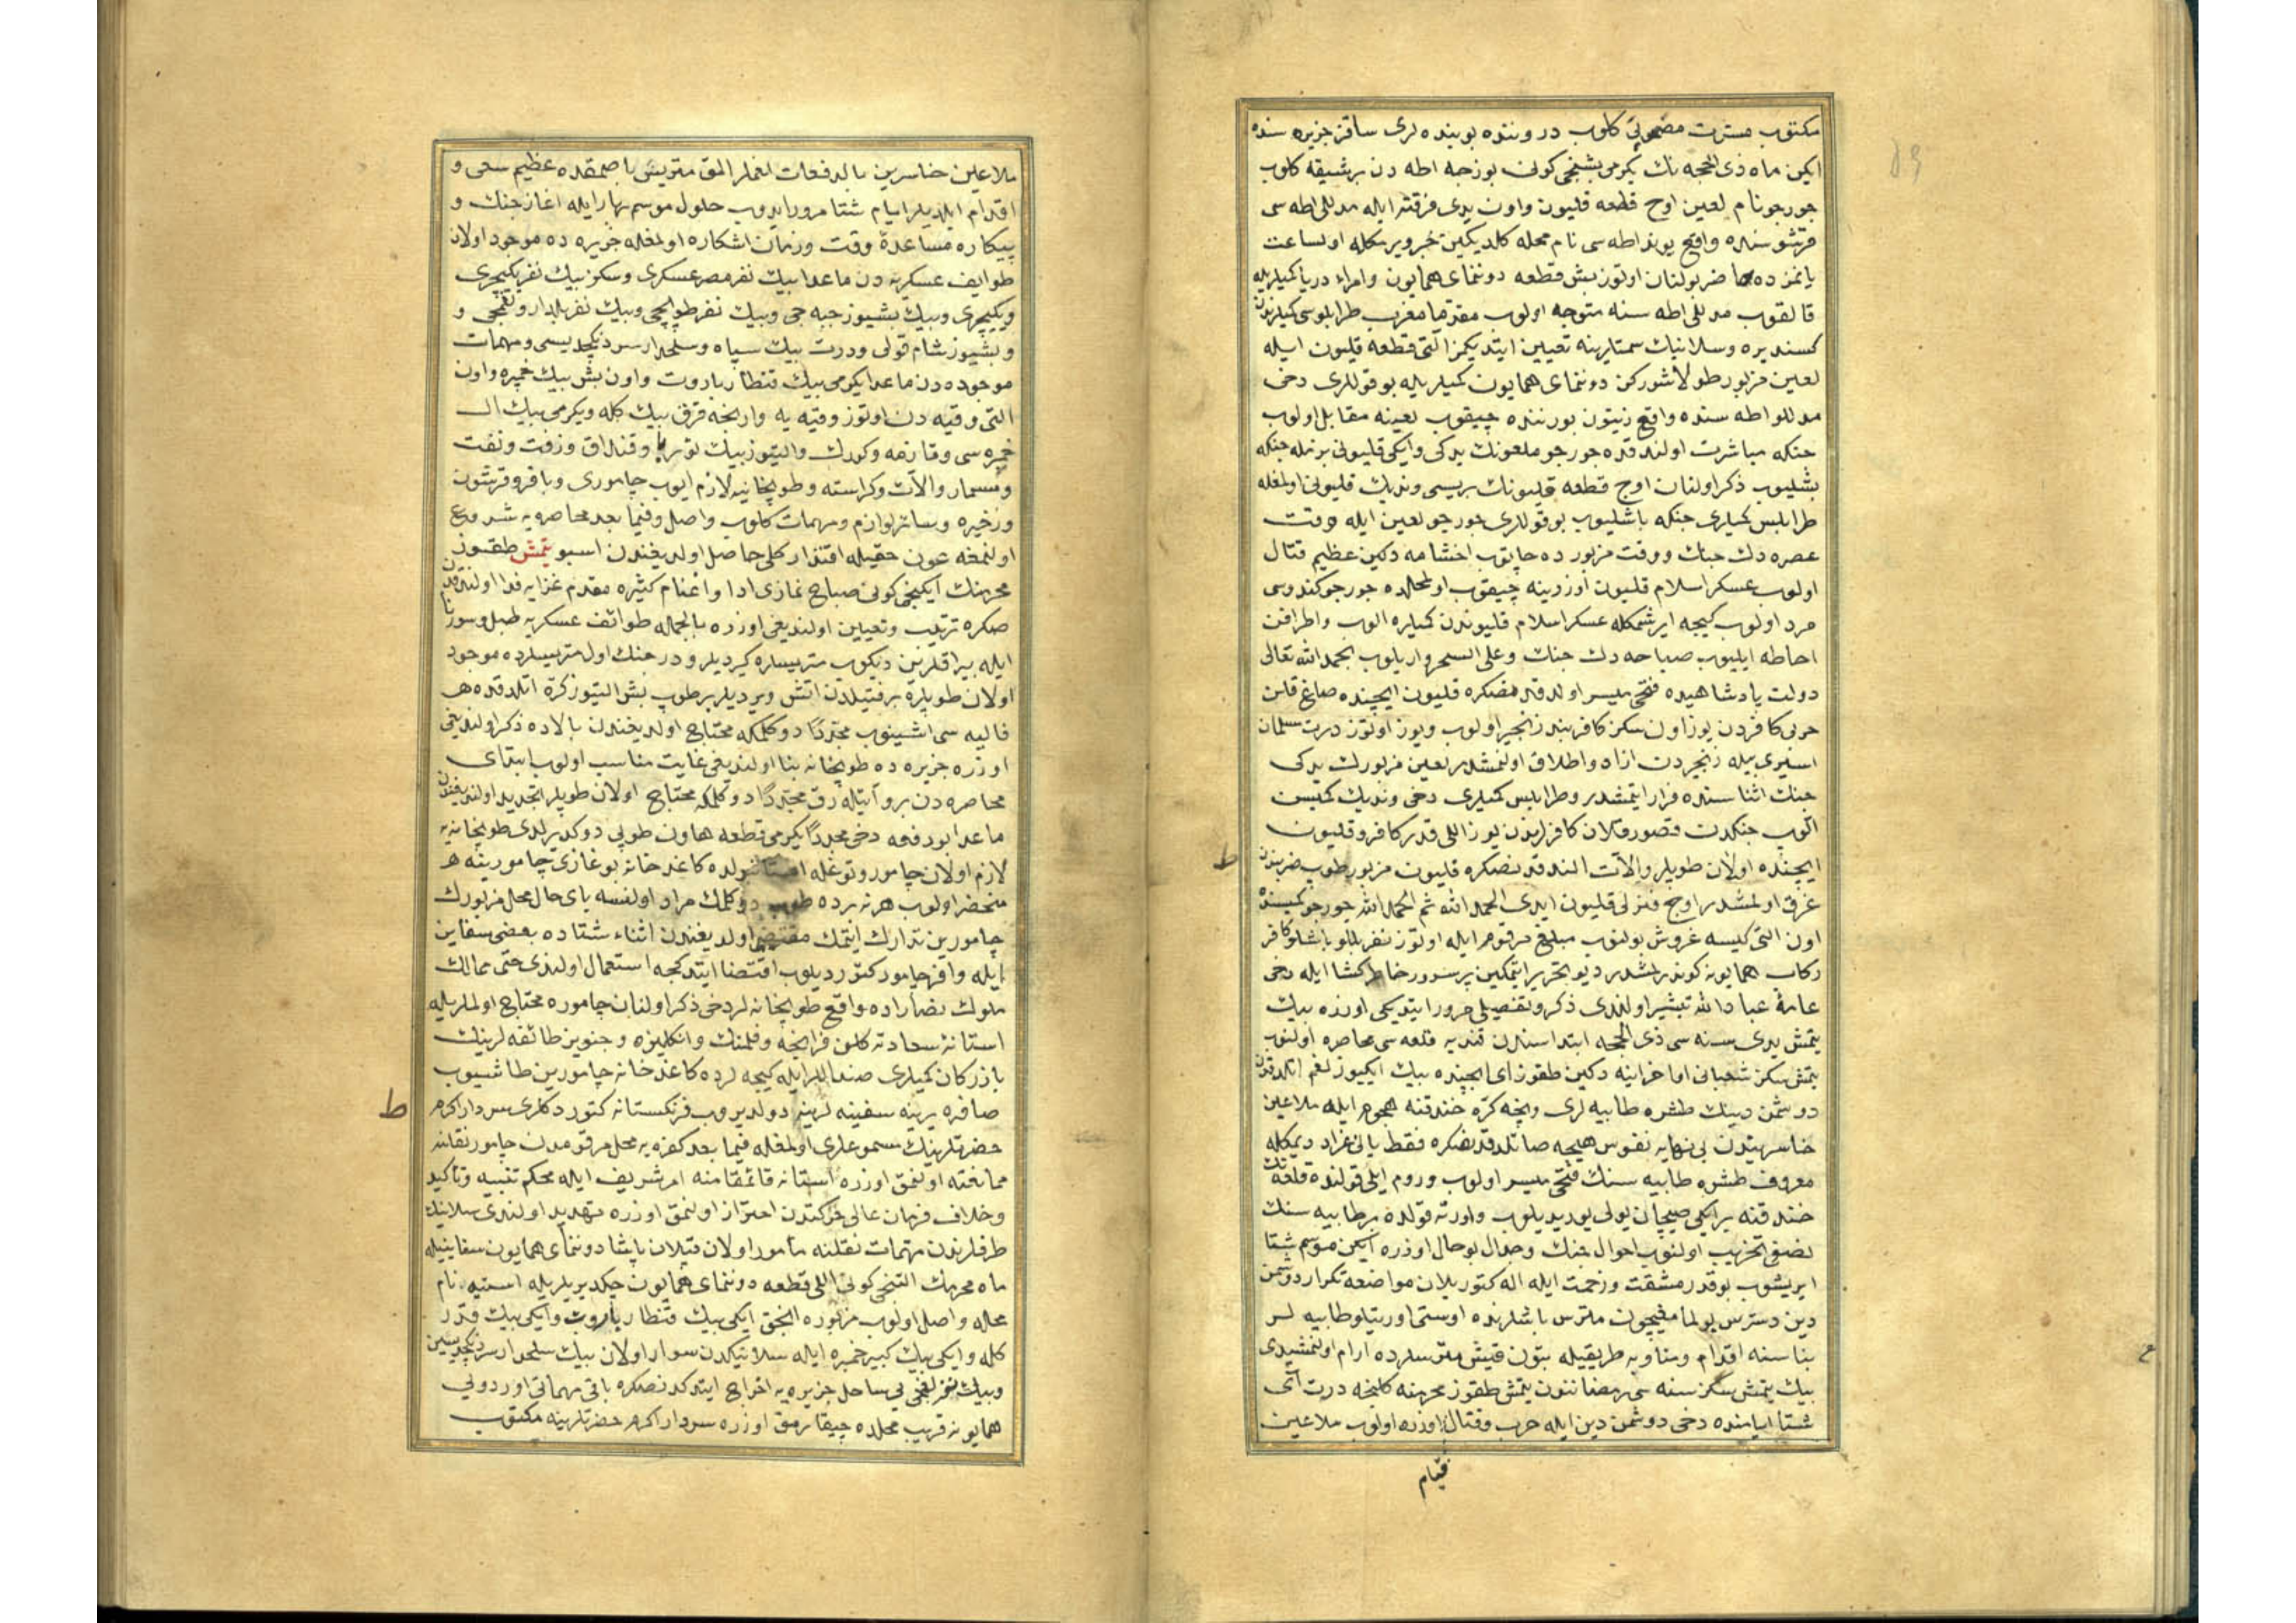 مكتوب مسرت مضمونى كلوب دروننده بو بنده لرى ساقز جزيره سنده
ايكن ماه ذى الحجه نك يكرمى بشنجى كونى بوزجه اطه دن بر شيقه كلوب
جورجو نام لعين اوچ قطعه قليون واون يدى فرقته ايله مدللى اطه سى
قرشوسنده واقع يوند اطه سى نام محله كلديكين خبر ويرمكله اول ساعت
يانمزده حاضر بولنان اوتوز بش قطعه دوننماى همايون وامراء دريا كميلريله
قالقوب مدللى اطه سنه متوجه اولوب مقدما مغرب طرابلوسى كميلرندن
كسنديره وسلانيك سمتلرينه تعيين ايتديكمز التى قطعه قليون ايله
لعين مزبور طولاشوركن دوننماى همايون كميلريله بو قوللرى دخى
مدللو اطه سنده واقع زيتون بورننده چيقوب لعينه مقابل اولوب
جنكه مباشرت اولندقده جورجو ملعونك يدكى وايكى قليونى بزمله جنكه
بشليوب ذكر اولنان اوچ قطعه قليونك بريسى ونديك قليونى اولمغله
طرابلس كميلرى جنكه باشليوب بو قوللرى جورجو لعين ايله وقت
عصره دك جنك ووقت مزبورده چاتوب اخشامه دكين عظيم قتال
اولوب عسكر اسلام قليون اوزرينه چيقوب اول محلده جورجو كندوسى
مرد اولوب كيجه ايرشمكله عسكر اسلام قليوندن كميلره الوب واطرافن
احاطه ايليوب صباحه دك جنك وعلى السحر واريلوب بحمد الله تعالى
دولت پادشاهيده فتحى ميسر اولدقدنصكره قليون ايچنده صاغ قلان
حربى كافردن يوز اون سكز كافر بند زنجير اولوب ويوز اوتوز درت مسلمان
اسيرى بيله زنجيردن ازاد واطلاق اولنمشدر لعين مزبورك يدكى
جنك اثناسنده فرار ايتمشدر وطرابلس كميلرى دخى ونديك كميسن
الوب جنكدن قصور قلان كافرلرندن يوز اللى قدر كافر وقليون
ايچنده اولان طوپلر والات النددقدنصكره قليون مزبور طوپ ضربندن
غرق اولمشدر اوچ فنرلى قليون ايدى الحمد الله ثم الحمد الله جورجو كميسنده
اون التى كيسه غروش بولنوب مبلغ مرقوم ايله اوتوز نفر بللو باشلو كافر
ركاب همايونه كوندرلمشدر ديو تحرير ايتمكين پر سرور خاطر كشا ايله دخى
عامۀ عباد الله تبشير اولندى ذكر وتفصيلى مرور ايتديكى اوزره بيك
يتمش يدى سنه سى ذى الحجه ابتداسندن قنديه قلعه سى محاصره اولنوب
يتمش سكز شعبانى اواخرينه دكين طقوز اى ايچنده بيك ايكيوز لغم اتلدقدن
دوشمن دينك طشره طابيه لرى ونيجه كره خندقنه هجوم ايله ملاعين
خاسريندن بى نهايه نفوس هيچه صاتلدقدنصكره فقط يالى غراد ديمكله
معروف طشره طابيه سنك فتحى ميسر اولوب وروم ايلى قولنده قلعه نك
خندقنه بر ايكى صيچان يولى يوريديلوب واورته قولده بر طابيه سنك
نصفى تخريب اولنوب احوال جنك وجدال بو حال اوزره ايكن موسم شتا
ايريشوب بو قدر مشقت وزحمت ايله اله كتوريلان مواضعه تكرار دوشمن
دين دسترس بولمامغيچون متريس باشلرنده اوستى اورتيلو طابيه لر
بناسنه اقدام ومناوبه طريقيله بتون قيش متريسلرده آرام اولنمشيدى
بيك يتمش سكز سنه سى رمضاننون يتمش طقوز محرمنه كلنجه درت آى
شتا ايامنده دخى دوشمن دين ايله حرب وقتال اوزره اولوب ملاعين
قيام
ملاعين خاسرين بالدفعات لغملر المق متريسى باصمقده عظيم سعى و
اقدام ايلديلر ايام شتا مرور ايدوب حلول موسم بهار ايله اغاز جنك و
پيكاره مساعدۀ وقت وزمان اشكاره اولمغله جزيره ده موجود اولان
طوايف عسكريه دن ماعدا بيك نفر مصر عسكرى وسكز بيك نفر يكيچرى
ويكيچرى وبيك بشيوز جبه جى وبيك نفر طوپچى وبيك نفر بلدار ولغمجى و
وبشيوز شام قولى ودرت بيك سپاه وسلحدار سردنكچديسى ومهمات
موجوده دن ماعدا يكرمى بيك قنطار باروت واون بش بيك خمپره واون
التى وقيه دن اوتوز وقيه يه وارنجه قرق بيك كله ويكرمى بيك ال
خمپره سى وقازمه وكورك والتيوز بيك توربا وقنداق وزفت ونفت
ومسمار والات وكراسته وطوپخانيه لازم ايوب چامورى وباقر وقرشون
وذخيره وسائر لوازم ومهمات كلوب واصل وفيما بعد محاصره يه شروع
اولنمغه عون حقيله اقتدار كلى حاصل اولديغندن اسبو يتمش طقوز
محرمنك ايكنجى كونى صباح نمازى ادا واغنام كثيره مقدم غزايه فدا اولندقدن
صكره ترتيب وتعيين اولنديغى اوزره بالجمله طوائف عسكريه طبل وسورنا
ايله بيراقلرين ديكوب متريسلره كيرديلر ودر جنك اول متريسلرده موجود
اولان طوپلره بر فتيلدن اتش ويرديلر بر طوپ بش التيوز كره اتلدقده هـ
فاليه سى اشينوب مجددا دوكلمكه محتاج اولديغندن بالاده ذكر اولنديغى
اوزره جزيره ده طوپخانه بنا اولنديغى غايت مناسب اولوب ابتداى
محاصره دن برو آتيله رق مجددا دوكلمكه محتاج اولان طوپلر تجديد اولنديغندن
ماعدا بو دفعه دخى مجددا يكرمى قطعه هاون طوپى دوكديرلدى طوپخانه يه
لازم اولان چامور وتوغله استانبولده كاغد خانه بوغازى چامورينه هـ
منحصر اولوب هر نه يرده طوپ دوكلمك مراد اولنسه باى حال محل مزبورك
چامورين تدارك ايتمك مقتضى اولديغندن اثناء شتاده بعضى سفاين
ايله وافر چامور كتورديلوب اقتضا ايتدكجه استعمال اولندى حتى ممالك
ملوك نصاراده واقع طوپخانه لر دخى ذكر اولنان چاموره محتاج اولملريله
استانۀ سعادته كلان فرانجه وفلمنك وانكليزه وجنويز طائفه لرينك
بازركان كميلرى صنداللر ايله كيجه لرده كاغد خانه چامورين طاشيوب
صافره يرينه سفينه لرينه دولديروب فرنكستانه كتوردكلرى سردار اكرم
حضرتلرينك مسموعلرى اولمغله فيما بعد كفره يه محل مرقومدن چامور نقلنه
ممانعته اولنمق اوزره استانه قائمقامنه امر شريف ايله محكم تنبيه وتأكيد
وخلاف فرمان عالى حركتدن احتراز اولنمق اوزره تهديد اولندى سلانيك
طرفلرندن مهمات نقلنه مأمور اولان قپلان پاشا دوننماى همايون سفاينيله
ماه محرمك التنجى كونى اللى قطعه دوننماى همايون چكديريلريله استيه نام
محله واصل اولوب مزبوره انجق ايكى بيك قنطار باروت وايكى بيك قدر
كله وايكى بيك كبير خمپره ايله سلانيكدن سوار اولان بيك سلحدار سردنكچديسين
وبيك نفر لغمجى يى ساحل جزيره يه اخراج ايتدكدنصكره باقى مهماتى اوردوى
همايونه قريب محلده چيقارمق اوزره سردار اكرم حضرتلرينه مكتوب